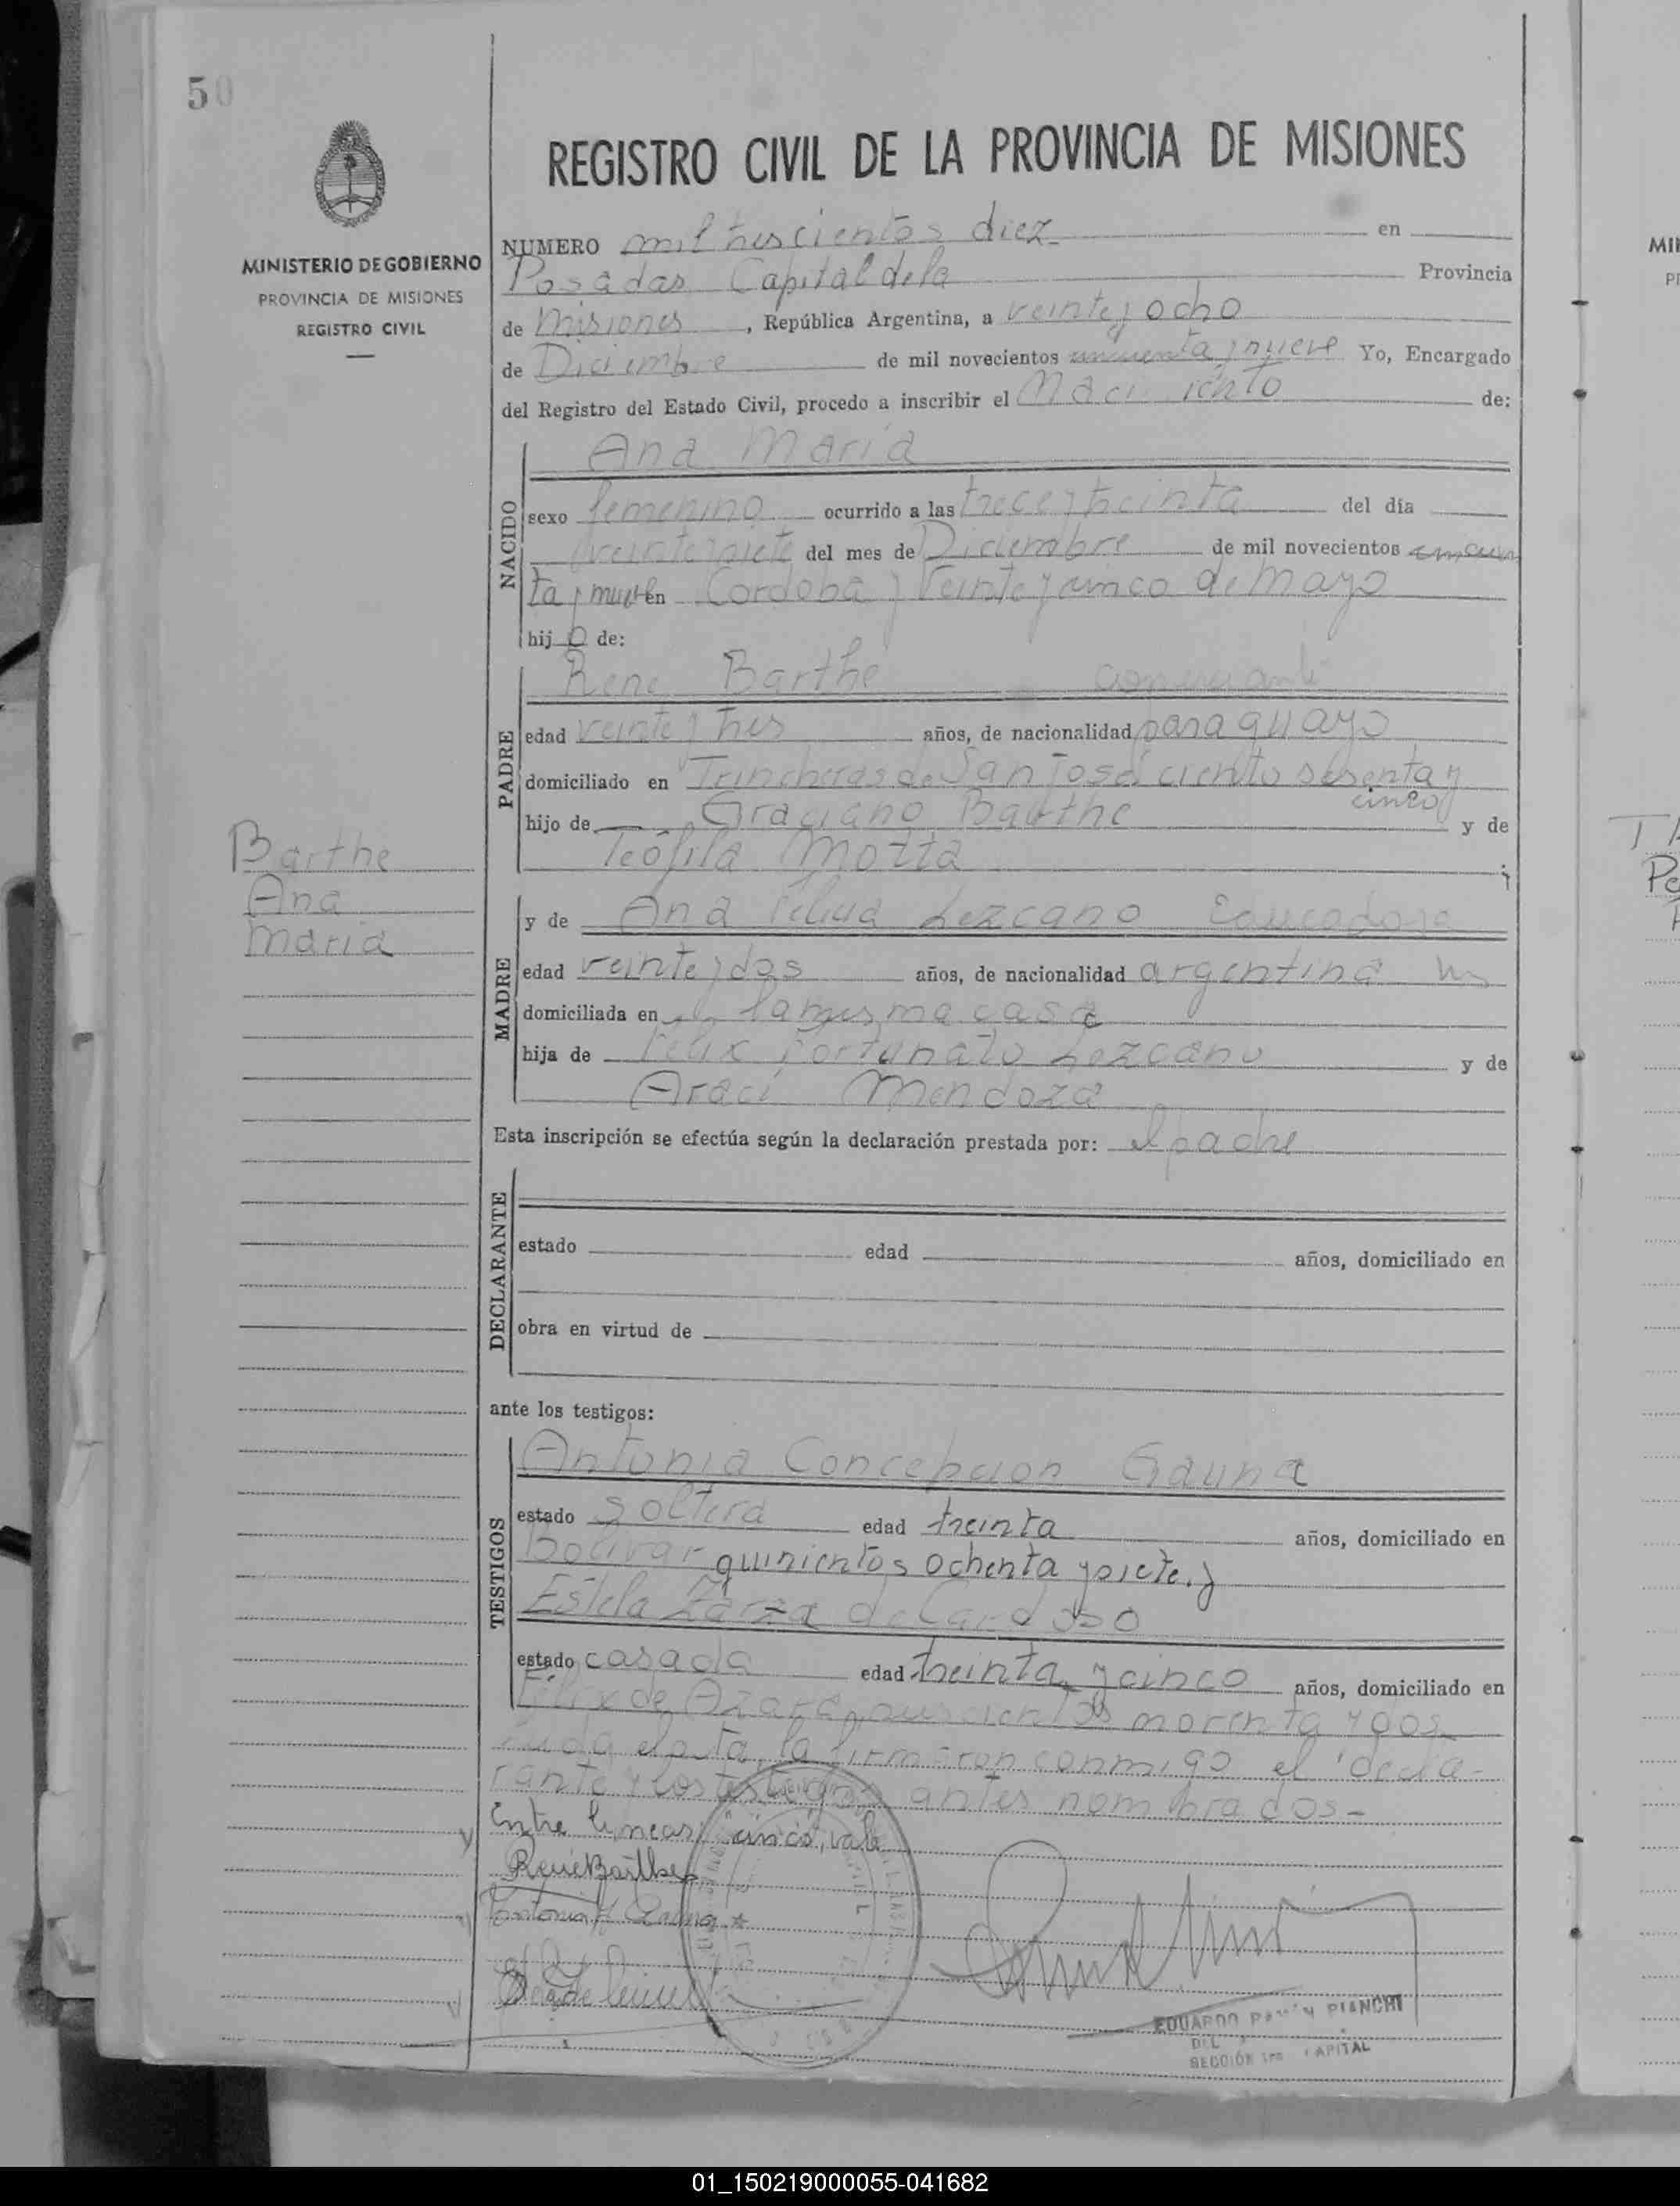 50
REGISTRO CIVIL DE LA PROVINCIA DE MISIONES
MINISTERIO DE GOBIERNO
PROVINCIA DE MISIONES
REGISTRO CIVIL
NUMERO mil trescientos diez en
Posadas Capital de la Provincia
de Misiones, República Argentina, a veinte y ocho
de Diciembre de mil novecientos cincuenta y nueve Yo, Encargado
del Registro del Estado Civil, procedo a inscribir el Naci iento de:
NACIDO
Ana Maria
sexo femenino ocurrido a las trece y treinta del día
veinte y siete del mes de Diciembre de mil novecientos cincuen
ta y nueve en Cordoba y Veinte y cinco de Mayo
hij de:
PADRE
Rene Barthe comerciante
edad veinte y tres años, de nacionalidad paraguayo
domiciliado en Trincheras de San José ciento sesenta y
cinco
hijo de Graciano Barthe y de
Teófila Motta
Barthe
Ana
Maria
MADRE
y de Ana Lezcano
edad veinte y dos años, de nacionalidad argentina
domiciliada en la misma casa
hija de Felix Fortunato Lezcano y de
Araci Mendoza
Esta inscripción se efectúa según la declaración prestada por: el padre
DECLARANTE
estado edad años, domiciliado en
obra en virtud de
ante los testigos:
TESTIGOS
Antonia Concepcion Gauna
estado soltera edad treinta años, domiciliado en
Bolivar quinientos ochenta y siete. y
Estela Zarza de Cardozo
estado casada edad treinta y cinco años, domiciliado en
Felix de Azara noventa y dos
el acta, la firmaron conmigo el decla-
rante y los testigos antes nombrados-
Entre lineas: cinco, vale
René Barthe
Antonia Gauna
EDUARDO PIANCHI
DEL
SECCIÓN 1ra CAPITAL
01_150219000055-041682